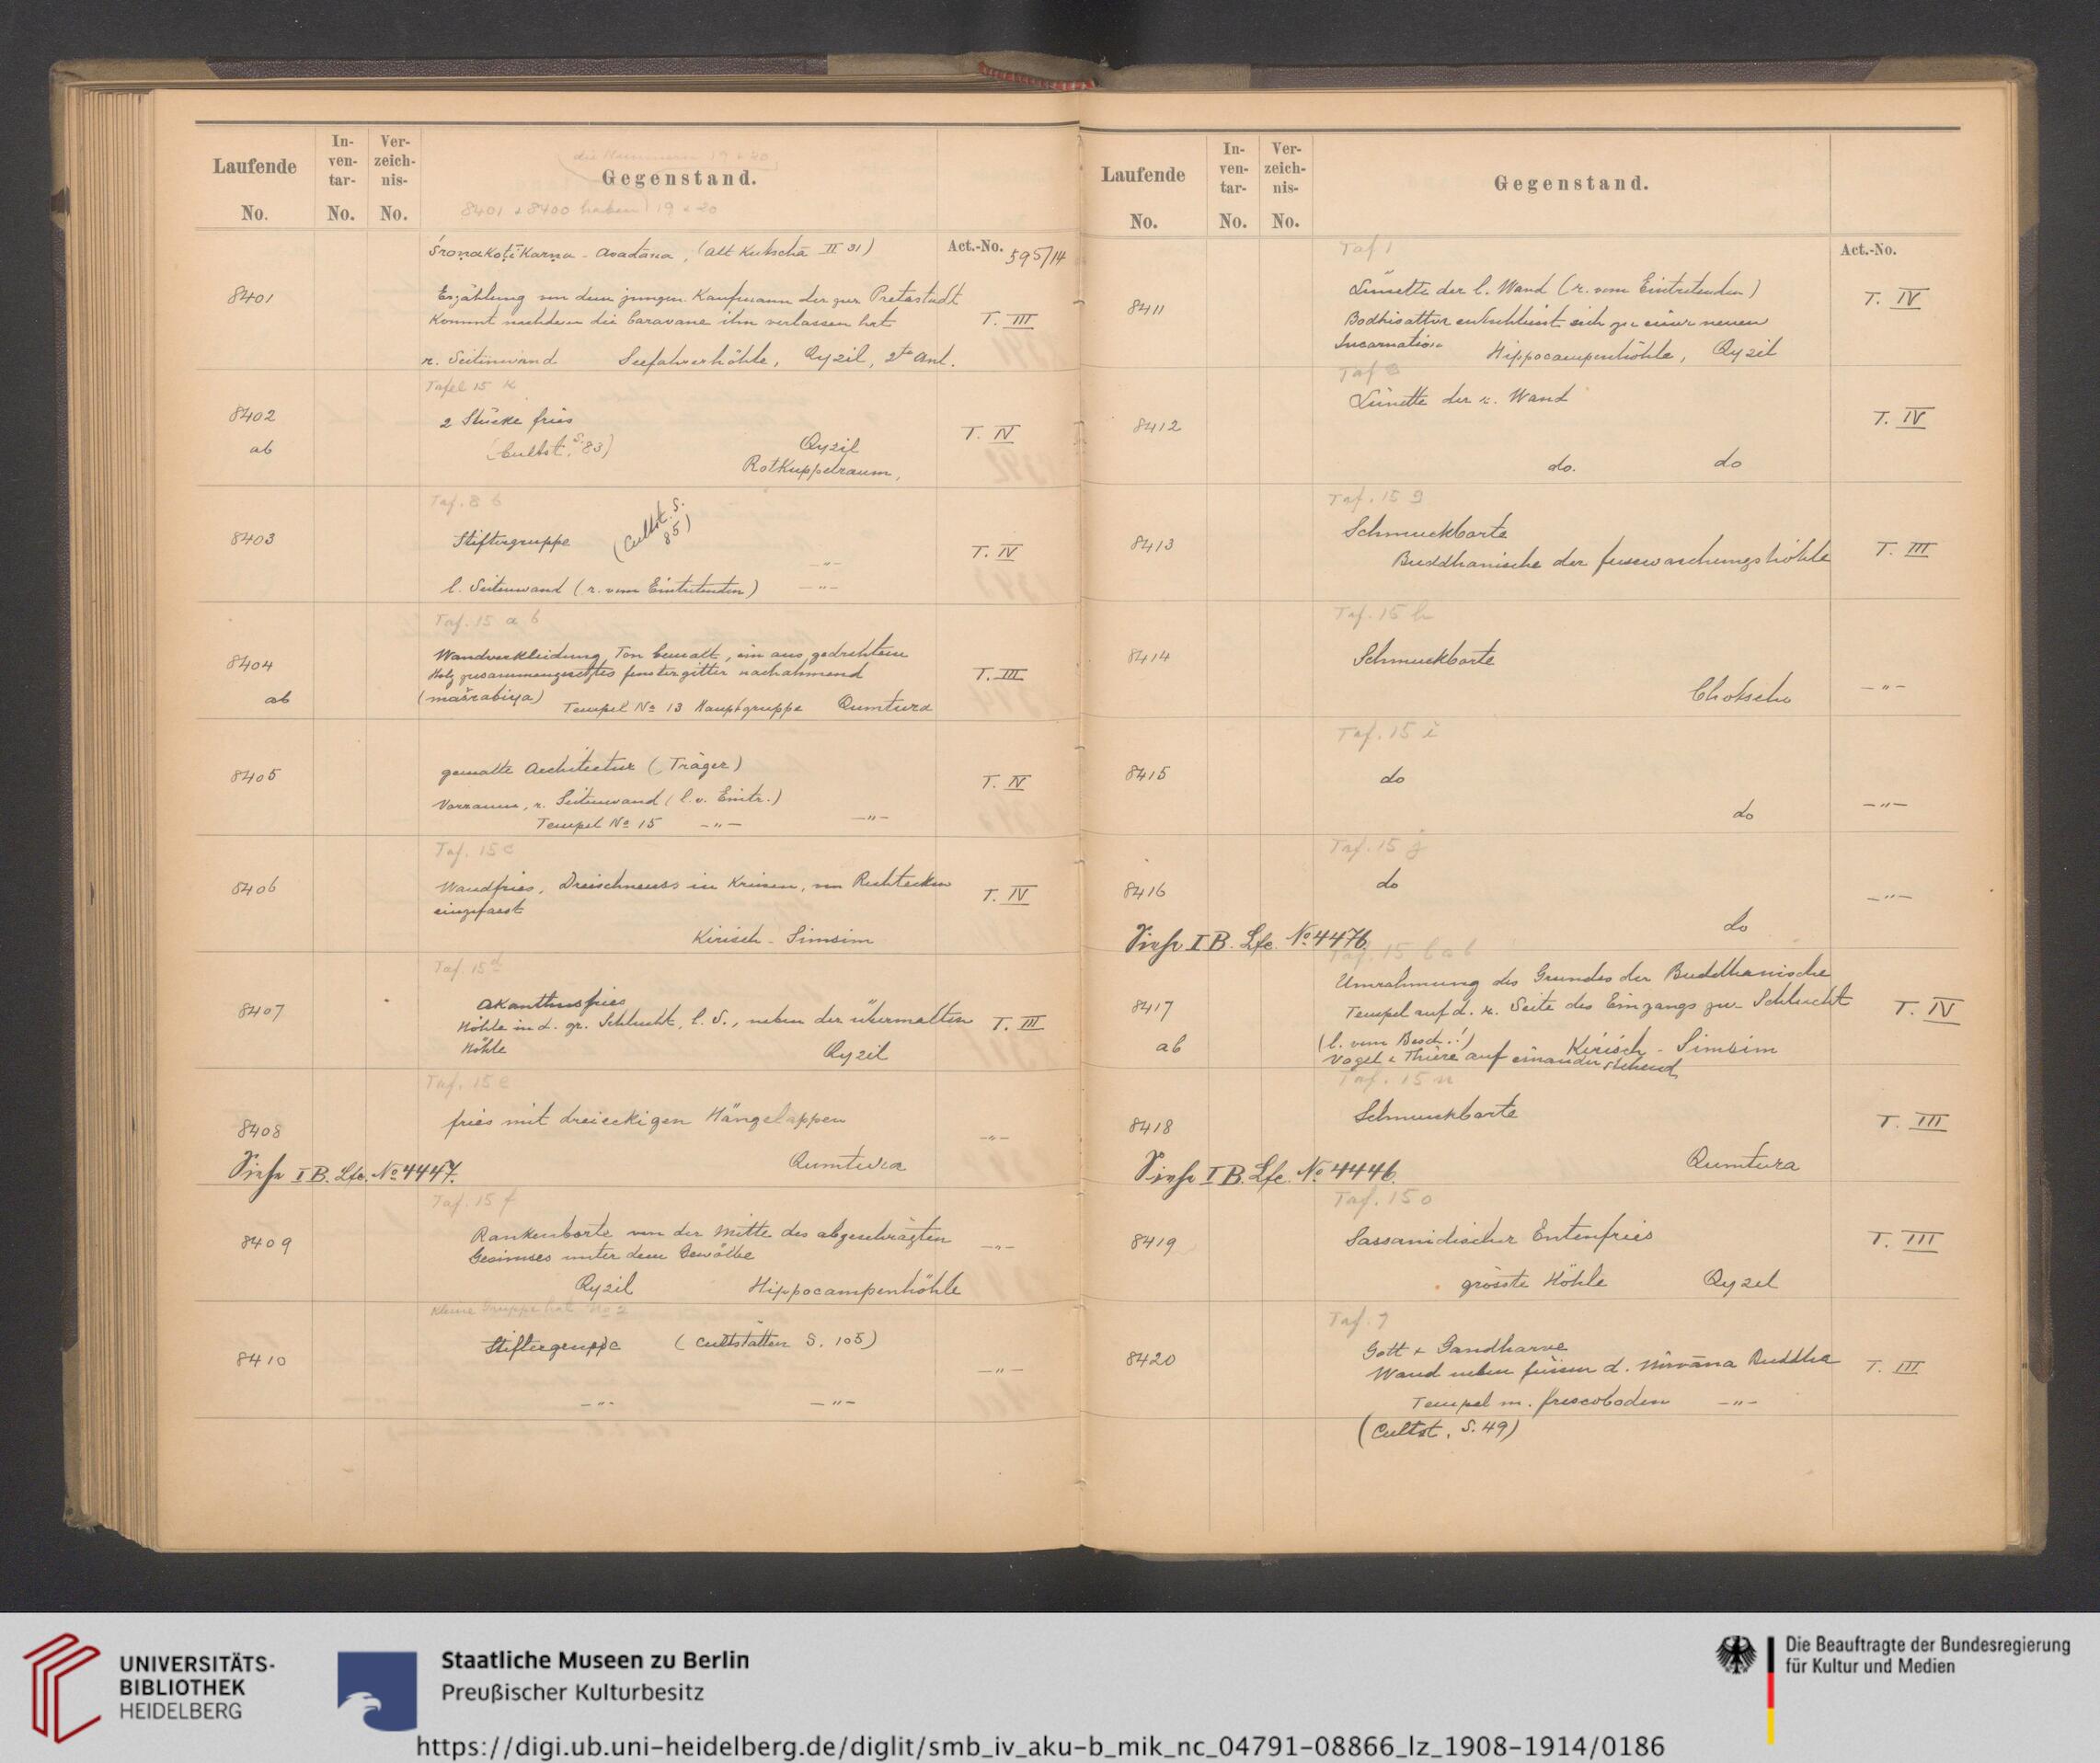 Laufende
No.
In-
ven-
tar-
No.
Ver-
zeich-
nis-
No.
(die Nummern 19 + 20)
Gegenstand.
8401 + 8400 haben 19 + 20
Śroṇakoṭīkarṇa - Avadāna, (Alt Kutscha II 31)
Act.-No. 595/14
8401
Erzählung von dem jungen Kaufmann der zur Pretastadt
kommt nachdem die Caravane ihn verlassen hat
T. III
r. Seitenwand Seefahrerhöhle, Qyzil, 2te Anl.
Tafel 15 k
8402
ab
2 Stücke fries
(Cultst. S. 83)
Qyzil
Rotkuppelraum,
T. IV
Taf. 8 b
8403
Stiftergruppe
(Cultst. S. 85)
-"-
T. IV
l. Seitenwand (r. vom Eintretenden) -"-
Taf. 15 a b
8404
ab
Wandverkleidung, Ton bemalt, ein aus gedrehtem
Holz zusammengesetztes fenstergitter nachahmend
T. III
(mašrabiya) Tempel No 13 Hauptgruppe Qumtura
8405
gemalte Architectur (Träger)
T. IV
Vorraum, r. Seitenwand (l. v. Eintr.)
Tempel No 15 -"- -"-
Taf. 15 c
8406
Wandfries, Dreischneuss in Kreisen, von Rechtecken
eingefasst
T. IV
Kirisch - Simsim
Taf. 15 d
8407
Akanthusfries
Höhle in d. gr. Schlucht, l. S., neben der übermalten
Höhle Qyzil
T. III
Taf. 15 e
8408
fries mit dreieckigen Hängelappen
-"-
Qumtura
Siehe I B. Lfe. No 4447.
Taf. 15 f
8409
Rankenborte von der Mitte des abgeschrägten
Gesimses unter dem Gewölbe
-"-
Qyzil Hippocampenhöhle
Kleine Gruppe hat No 2
8410
Stiftergruppe (Cultstätten S. 105)
-"-
-"- -"-
Laufende
No.
In-
ven-
tar-
No.
Ver-
zeich-
nis-
No.
Gegenstand.
Act.-No.
Taf 1
8411
Lünette der l. Wand (r. vom Eintretenden)
T. IV
Bodhisattva entschliesst sich zu einer neuen
Incarnation Hippocampenhöhle, Qyzil
Taf
8412
Lünette der r. Wand
T. IV
do. do
Taf. 15 g
8413
Schmuckborte
Buddhanische der fusswaschungshöhle
T. III
Taf. 15 h
8414
Schmuckborte
Chotscho
-"-
Taf. 15 i
8415
do
do
-"-
Taf. 15 j
8416
do
-"-
do
Siehe I B. Lfe. No 4476.
Taf. 15 l a b
8417
ab
Umrahmung des Grundes der Buddhanische
Tempel auf d. r. Seite des Eingangs zur Schlucht
T. IV
(l. vom Besch.!) Kirisch - Simsim
Vögel + Thiere auf einander stehend
Taf. 15 n
8418
Schmuckborte
T. III
Qumtura
Siehe I B. Lfe. No 4446.
Taf. 15 o
8419
Sassanidischer Entenfries
T. III
grösste Höhle Qyzil
Taf. 7
8420
Gott + Gandharve
Wand neben füssen d. Nirvāna Buddha
T. III
Tempel m. frescoboden -"-
(Cultst. S. 49)
UNIVERSITÄTS-
BIBLIOTHEK
HEIDELBERG
Staatliche Museen zu Berlin
Preußischer Kulturbesitz
Die Beauftragte der Bundesregierung
für Kultur und Medien
https://digi.ub.uni-heidelberg.de/diglit/smb_iv_aku-b_mik_nc_04791-08866_lz_1908-1914/0186